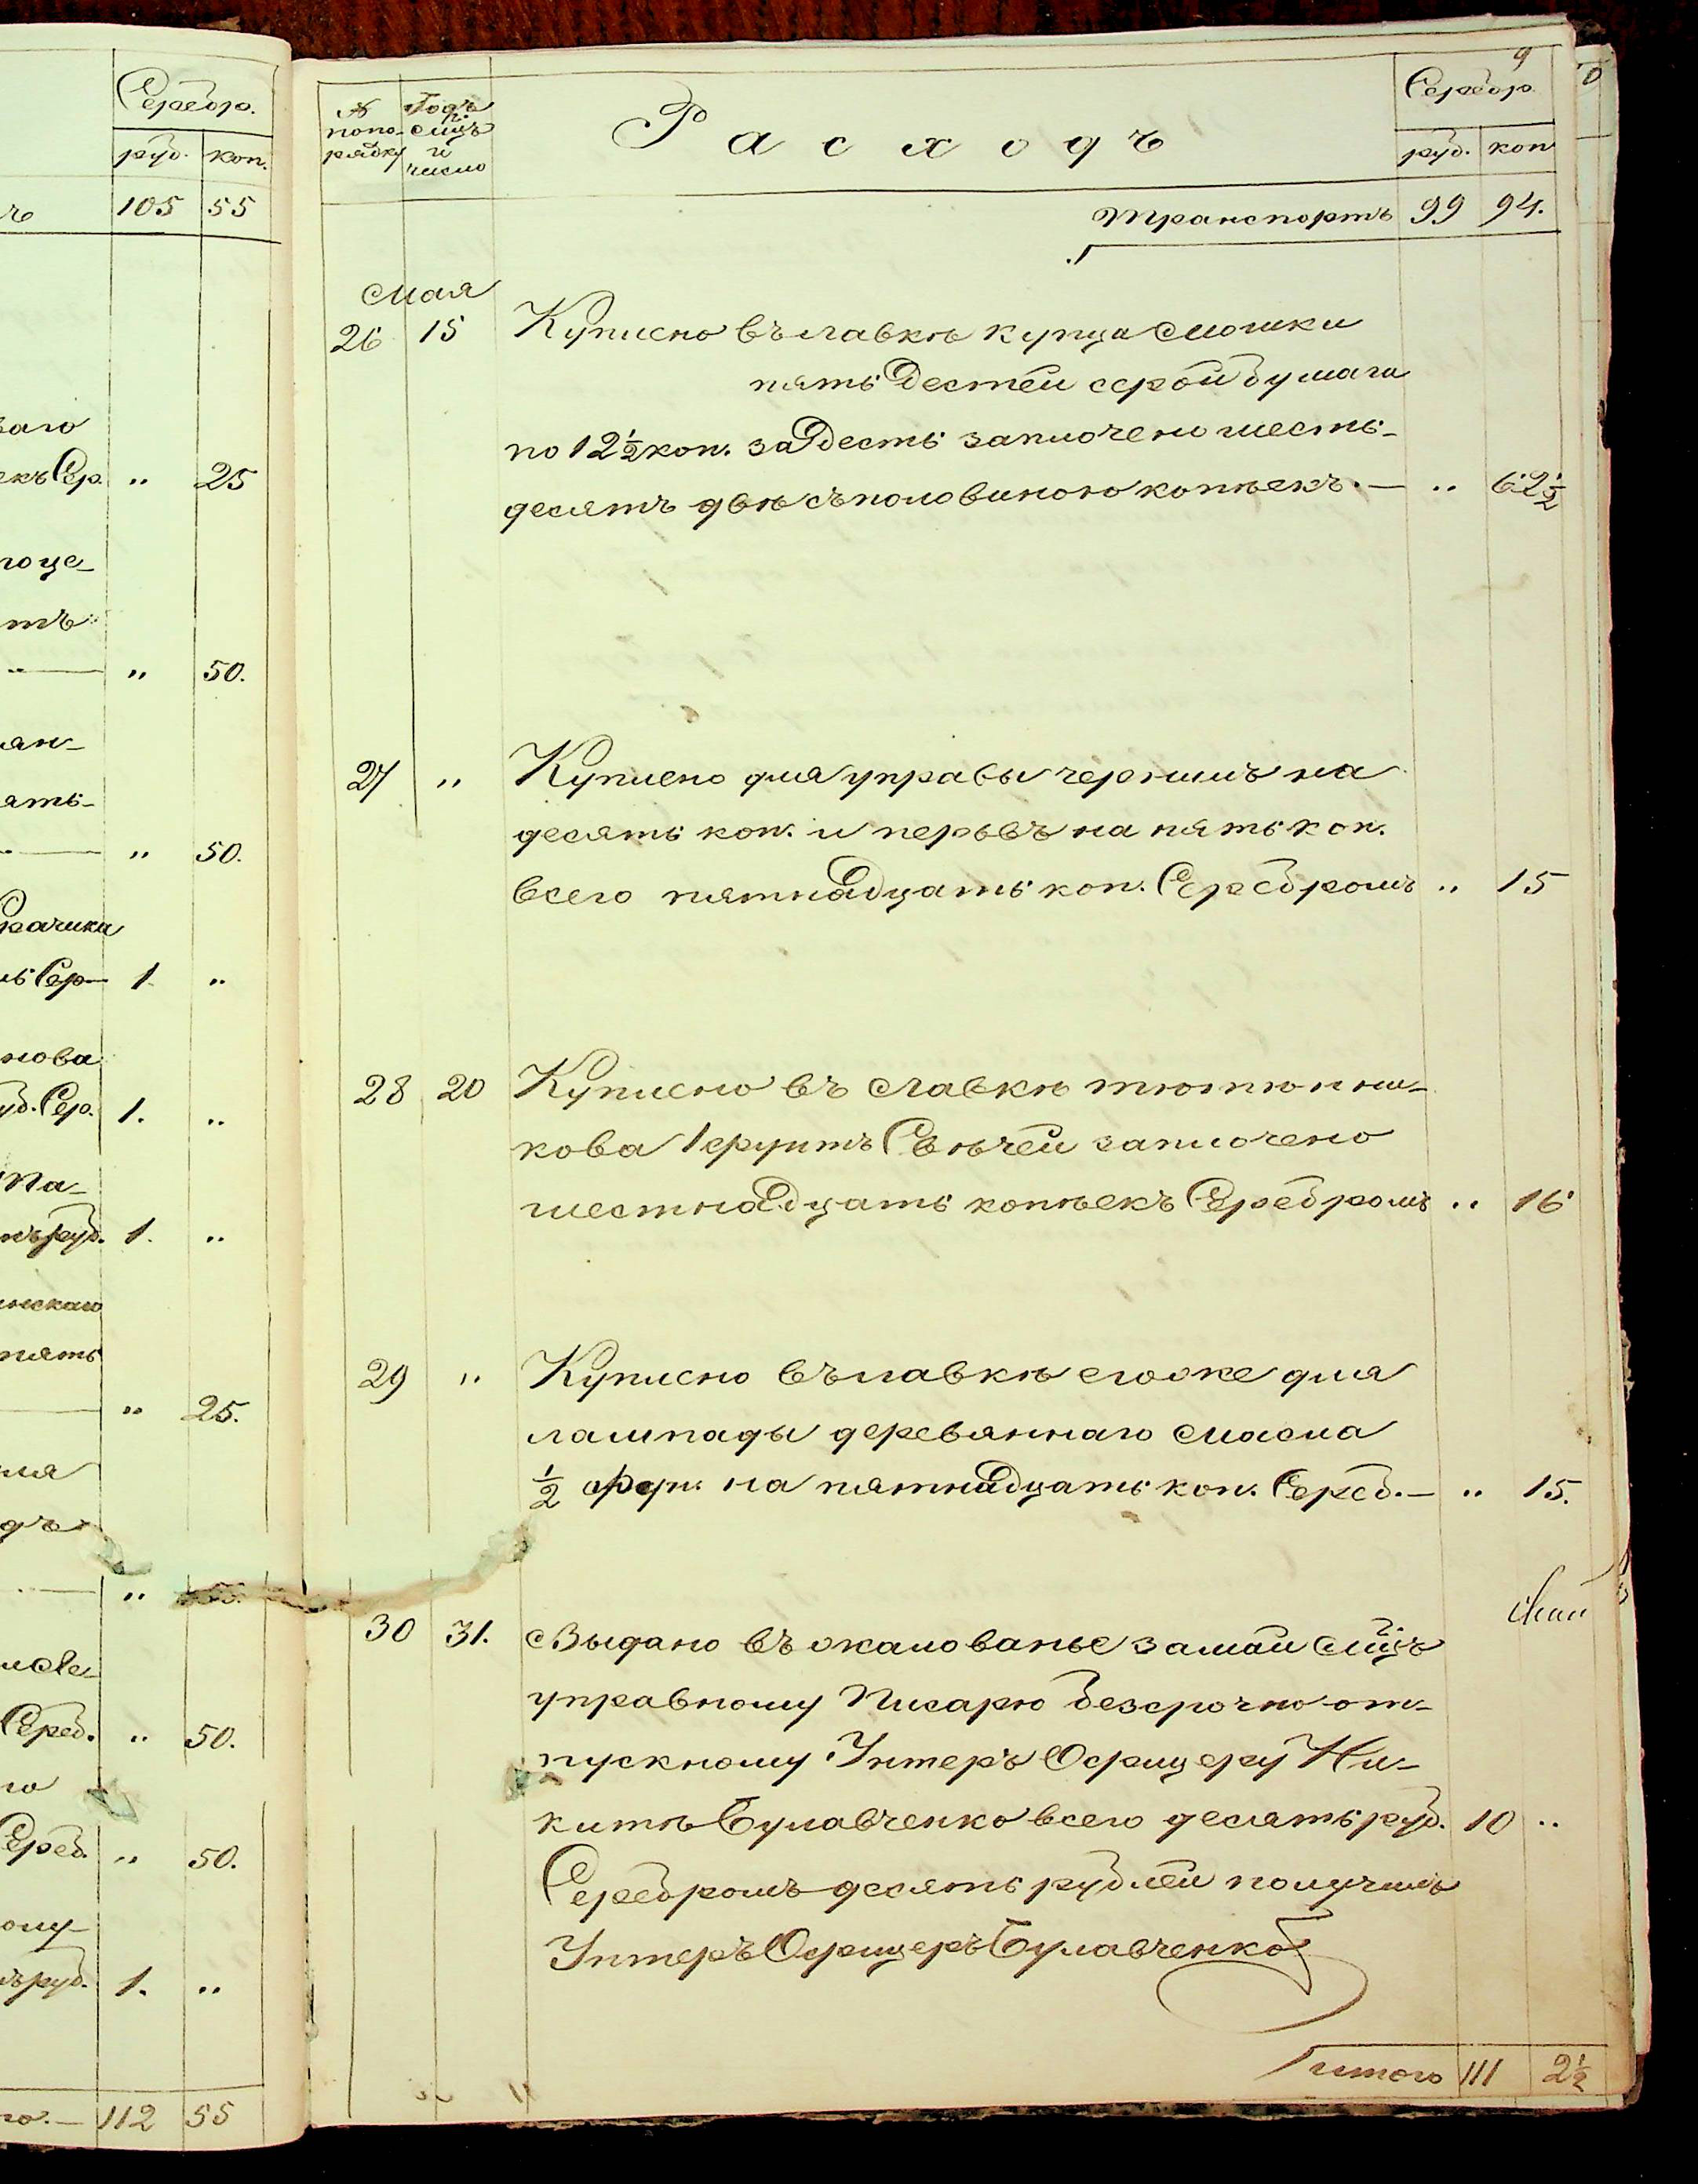 Серебр.
руб. коп.
105 55
ваго
екъ Сер. „ 25
тъ
„ 50.
ать-
„ 50.
Сер. 1 „
нова
руб. Сер. 1. „
руб. 1. „
инскаго
пять
„ 25.
„
Сереб. „ 50.
го
Сереб. „ 50.
ому
руб. 1. „
го. — 112 55
9
№ попо-рядку
Годъ м-цъ и число
Расходъ
Серебр.
руб. коп
Транспортъ 99 94.
Мая
26 15 Куплено въ лавкѣ купца Мошки
пять Дестей серой бумаги
по 12½ коп. за Десть заплочено шесть-
десятъ двѣ съ половиною копѣекъ. — „ 62½
27 „ Куплено для управы чернилъ на
десять коп. и перьевъ на пять коп.
всего пятнадцать коп. Серебромъ „ 15
28 20 Куплено въ Лавкѣ тютюнни-
кова 1 фунтъ Свѣчей заплочено
шестнадцать копѣекъ Серебромъ „ 16
29 „ Куплено въ лавкѣ егоже для
лампады деревяннаго масла
½ фун. на пятнадцать коп. Сереб. — „ 15.
30 31. Выдано въ жалованье за май м-цъ
управному Писарю безсрочно-от-
пускному Унтеръ Офицеру Ни-
китѣ Булавченко всего десять руб. 10 „
Серебромъ десять рублей получилъ
Унтеръ Офицеръ Булавченко
итого 111 2½